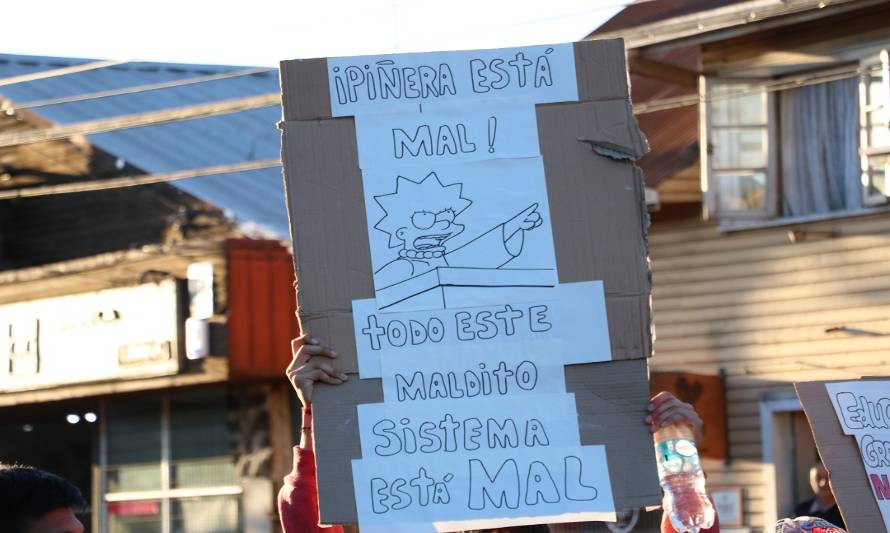 ¡PIÑERA ESTÁ
MAL!
TODO ESTE
MALDITO
SISTEMA
ESTÁ MAL